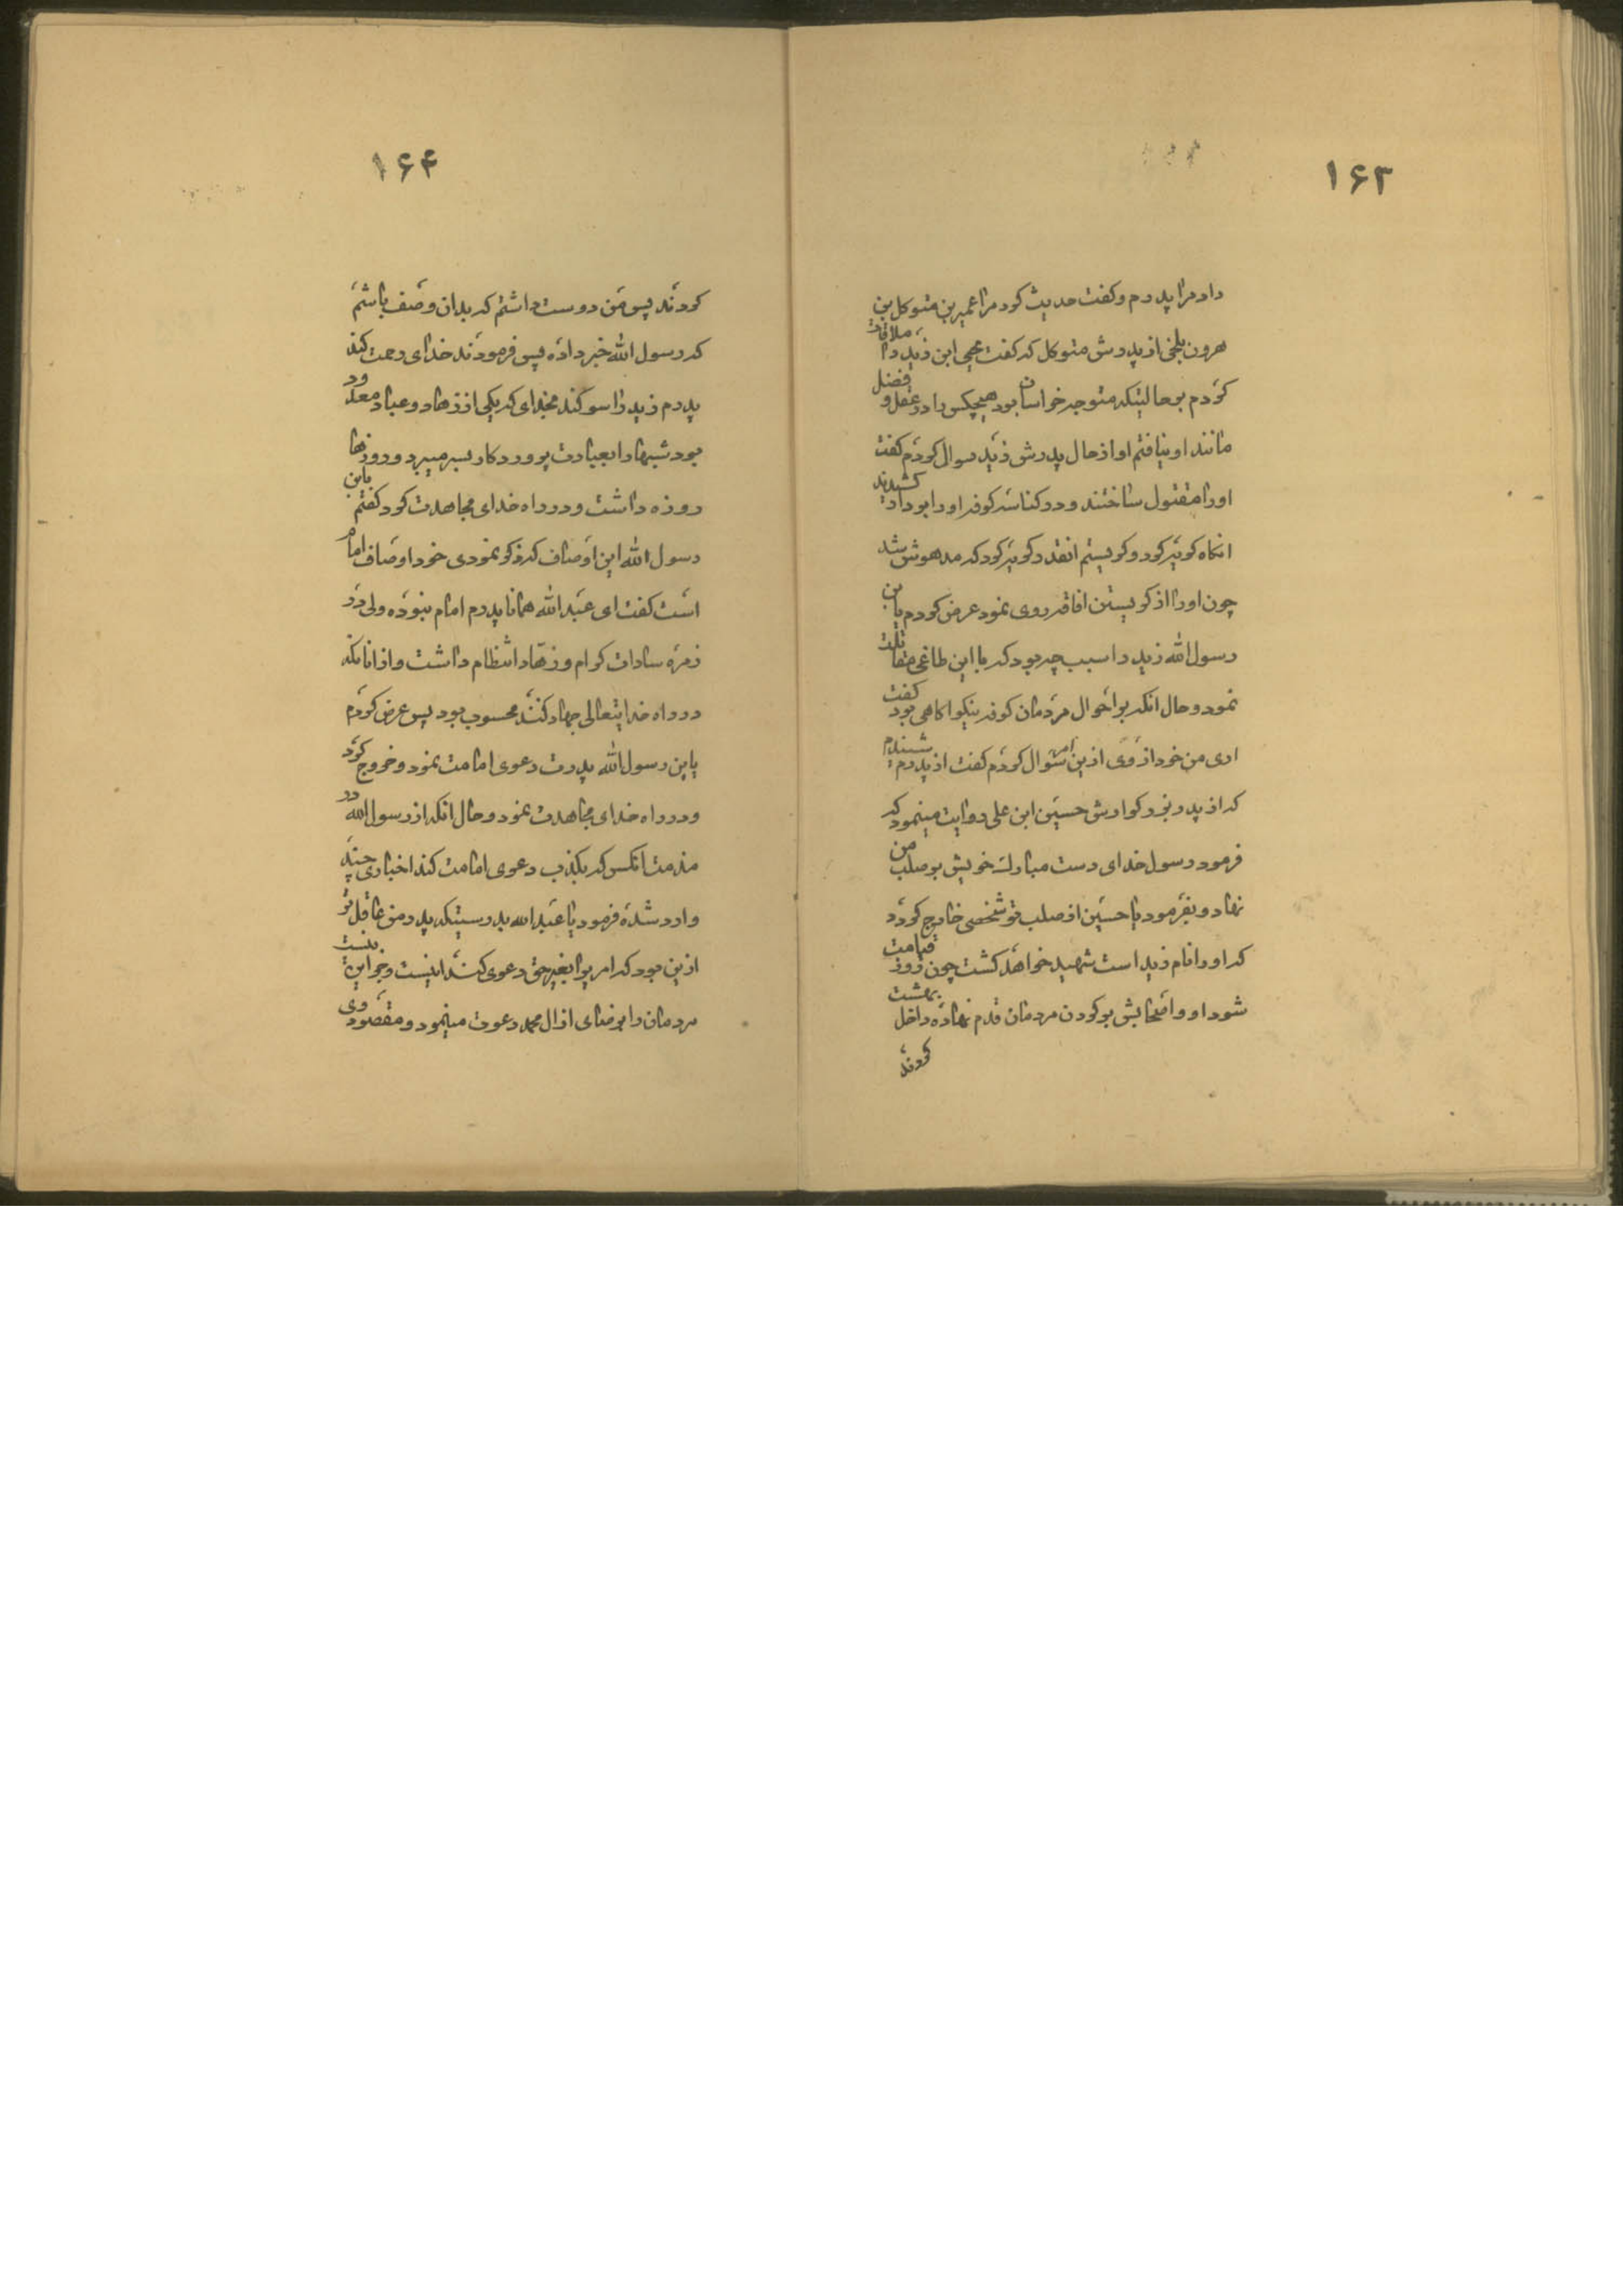 ۱۶۳
داد مرا پدرم و کفت حدیث کود مرا عمیر بن متوکل بن
هرون بلخی از پدرش متوکل که کفت یحیی ابن زید را ملاقات
کودم بر حالتیکه متوجه خراسان بود هیچکس را در عقل و فضل
مانند او نیافتم او از حال پدرش زید سوال کودم کفت
او را مقتول ساختند و در کناسه کوفه او را بر دار کشیدند
انکاه کریه کود و کریستم انقدر کریه کود که مدهوش شد
چون او را از کریستن افاقه روی نمود عرض کودم یا بن
رسول الله زید را سبب چه بود که با این طاغی مقاتلت
نمود و حال انکه بر احوال مردمان کوفه نیکو اکاهی بود کفت
اری من خود از وی ازین امر سوال کودم کفت از پدرم شنیدم
که از پدر بزرکوارش حسین ابن علی روایت مینمود که
فرمود رسول خدای دست مبارک خویش بر صلب من
نهاد و بفرمود یا حسین از صلب تو شخصی خارج کردد
که او را نام زید است شهید خواهد کشت چون روز قیامت
شود او و اصحابش بر کردن مردمان قدم نهاده داخل بهشت
کردند
۱۶۴
کردند پس من دوست داشتم که بدان وصف باشم
که رسول الله خبر داده پس فرمودند خدای رحمت کند
پدرم زید را سوکند بخدای که یکی از زهاد و عباد معدود
بود شبها را بعبادت پروردکار بسر میبرد و روزها
روزه داشت و در راه خدای مجاهدت کرد کفتم یابن
رسول الله این اوصاف که ذکر نمودی خود اوصاف امام
است کفت ای عبد الله همانا پدرم امام نبوده ولی در
زمره سادات کرام و زهاد انتظام داشت و از انانکه
در راه خدایتعالی جهاد کنند محسوب بود پس عرض کودم
یابن رسول الله پدرت دعوی امامت نمود و خروج کرد
و در راه خدای مجاهدت نمود و حال انکه از رسول الله در
مذمت انکس که بکذب دعوی امامت کند اخباری چند
وارد شده فرمود یا عبد الله بدرستیکه پدر من عاقل تر
ازین بود که امر یرا بغیر حق دعوی کند اینست و جز این نیست
مردمان را برضای از ال محمد دعوت مینمود و مقصود وی